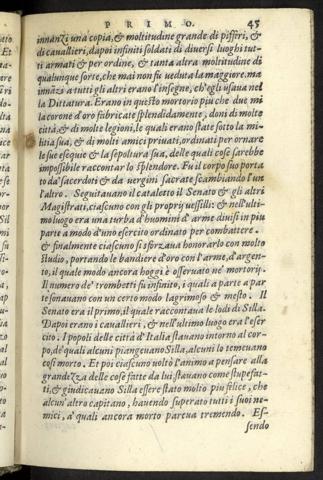 PRIMO. 45
innanzi una copia, & moltitudine grande di piffari, &
di cavallieri, dapoi infiniti soldati di diversi luoghi tut-
ti armati & per ordine, & tanta altra moltitudine di
qualunque sorte, che mai non fu veduta la maggiore. ma
innãzi a tutti gli altri erano l'insegne, ch'egli usava nel
la Dittatura. Erano in questo mortorio piu che due mi
la corone d'oro fabricate splendidamente, doni di molte
città, & di molte legioni, le quali erano state sotto la mi-
litia sua, & di molti amici privati, ordinati per ornare
le sue esequie & la sepoltura sua, delle quali cose sarebbe
impossibile raccontar lo splendore. Fu il corpo suo porta
to da' sacerdoti & da vergini sacrate scambiando l'un
l'altro. Seguitavano il cataletto il Senato & gli altri
Magistrati, ciascuno con gli proprij vessilli: & nell'ulti-
mo luogo era una turba d'huomini d'arme divisi in piu
parte a modo d'uno esercito ordinato per combattere.
& finalmente ciascuno si sforzava honorarlo con molto
studio, portando le bandiere d'oro con l'arme, d'argen-
to, il quale modo ancora hoggi è osservato ne' mortorij.
Il numero de' trombetti fu infinito, i quali a parte a par
te sonavano con un certo modo lagrimoso & mesto. Il
Senato era il primo, il quale raccontava le lodi di Silla.
Dapoi erano i cavallieri, & nell'ultimo luogo era l'eser
cito. I popoli delle città d'Italia stavano intorno al cor-
po, de' quali alcuni piangevano Silla, alcuni lo temevano
cosi morto. Et poi ciascuno voltò l'animo a pensare alla
grandezza delle cose fatte da lui stavano come stupefat-
ti, & giudicavano Silla essere stato molto piu felice, che
alcun'altro capitano, havendo superato tutti i suoi ne-
mici, a' quali ancora morto pareva tremendo. Es-
sendo